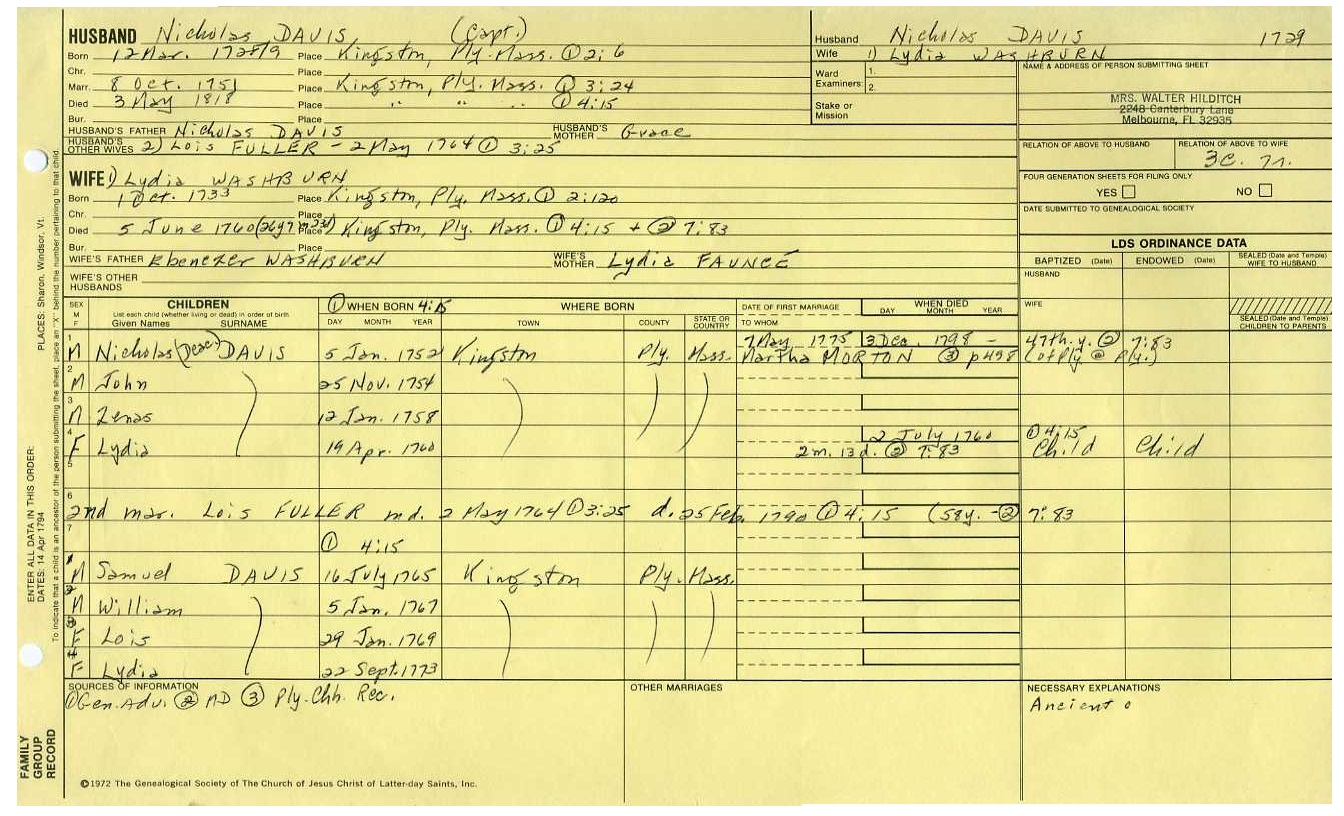 HUSBAND Nicholas DAVIS (Capt.)
Born 12 Mar. 1728/9 Place Kingston, Ply. Mass. ① 2:6
Chr. Place
Marr. 8 Oct. 1751 Place Kingston, Ply. Mass. ① 3:24
Died 3 May 1818 Place " " " ① 4:15
Bur. Place
HUSBAND'S FATHER Nicholas DAVIS HUSBAND'S MOTHER Grace
HUSBAND'S OTHER WIVES 2) Lois FULLER - 2 May 1764 ① 3:25
Husband Nicholas DAVIS 1729
Wife 1) Lydia WASHBURN
Ward Examiners: 1. 2.
Stake or Mission
NAME & ADDRESS OF PERSON SUBMITTING SHEET
MRS. WALTER HILDITCH
2248 Canterbury Lane
Melbourne, FL 32935
RELATION OF ABOVE TO HUSBAND RELATION OF ABOVE TO WIFE
3C.
FOUR GENERATION SHEETS FOR FILING ONLY
YES NO
DATE SUBMITTED TO GENEALOGICAL SOCIETY
WIFE 1) Lydia WASHBURN
Born 1 Oct. 1733 Place Kingston, Ply. Mass. ① 2:120
Chr. Place
Died 5 June 1760 Place Kingston, Ply. Mass. ① 4:15 + ② 7:83
Bur. Place
WIFE'S FATHER Ebenezer WASHBURN WIFE'S MOTHER Lydia FAUNCE
WIFE'S OTHER HUSBANDS
LDS ORDINANCE DATA
BAPTIZED (Date) ENDOWED (Date) SEALED (Date and Temple) WIFE TO HUSBAND
HUSBAND
WIFE
SEALED (Date and Temple) CHILDREN TO PARENTS
SEX M F CHILDREN List each child (whether living or dead) in order of birth Given Names SURNAME
① WHEN BORN 4:15 DAY MONTH YEAR
WHERE BORN TOWN COUNTY STATE OR COUNTRY
DATE OF FIRST MARRIAGE TO WHOM
WHEN DIED DAY MONTH YEAR
7 May 1775 3 Dec. 1798 - 47th. y. ② 7:83
1 M Nicholas (Deac.) DAVIS 5 Jan. 1752 Kingston Ply. Mass. Martha MORTON ③ p498 (of Ply. @ Ply.)
2 M John 25 Nov. 1754
3 M Zenas 12 Jan. 1758
2 July 1760 ① 4:15
4 F Lydia 19 Apr. 1760 2 m. 13 d. ② 7:83 Child Child
5
6 2nd mar. Lois FULLER md. 2 May 1764 ① 3:25 d. 25 Feb. 1790 ① 4:15 (58y. - ② 7:83
7 ① 4:15
1 M Samuel DAVIS 16 July 1765 Kingston Ply. Mass.
2 M William 5 Jan. 1767
3 F Lois 29 Jan. 1769
4 F Lydia 22 Sept. 1773
SOURCES OF INFORMATION
① Gen. Adv. ② MD ③ Ply. Chh. Rec.
OTHER MARRIAGES
NECESSARY EXPLANATIONS
Ancient o
©1972 The Genealogical Society of The Church of Jesus Christ of Latter-day Saints, Inc.
FAMILY GROUP RECORD
ENTER ALL DATA IN THIS ORDER:
DATES: 14 Apr 1794 PLACES: Sharon, Windsor, Vt.
To indicate that a child is an ancestor of the person submitting the sheet, place an "X" behind the number pertaining to that child.